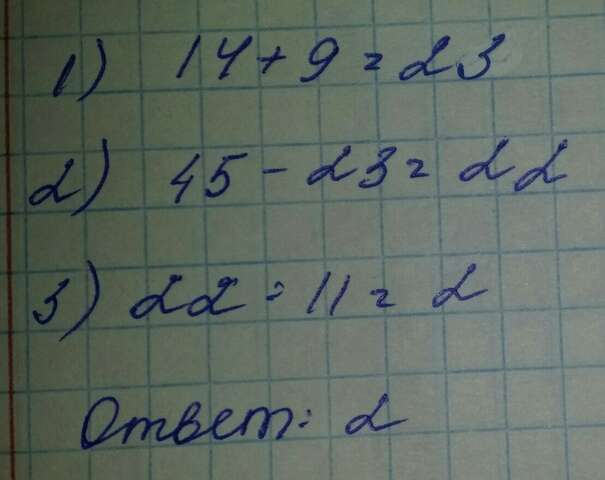 1) 14 + 9 = 23
2) 45 - 23 = 22
3) 22 : 11 = 2
Ответ: 2